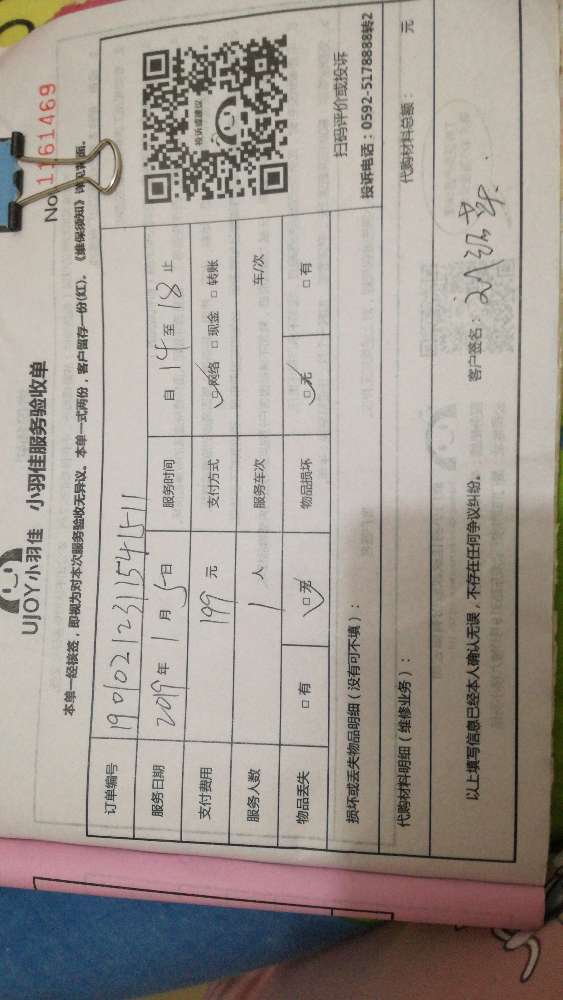 No 1161469
UJOY小羽佳 小羽佳服务验收单
本单一经核签，即视为对本次服务验收无异议。本单一式两份，客户留存一份(红)。《维保须知》详见背面。
订单编号 19010212311541511
投诉或建议
服务日期 2019年 1月 5日 服务时间 自 14 至 18 止
支付费用 199 元 支付方式 □网络 □现金 □转账
服务人数 1 人 服务车次 车/次
物品丢失 □有 □无 物品损坏 □无 □有
扫码评价或投诉
损坏或丢失物品明细（没有可不填）：
投诉电话：0592-5178888转2
代购材料明细（维修业务）： 代购材料总额： 元
以上填写信息已经本人确认无误，不存在任何争议纠纷。 客户签名：